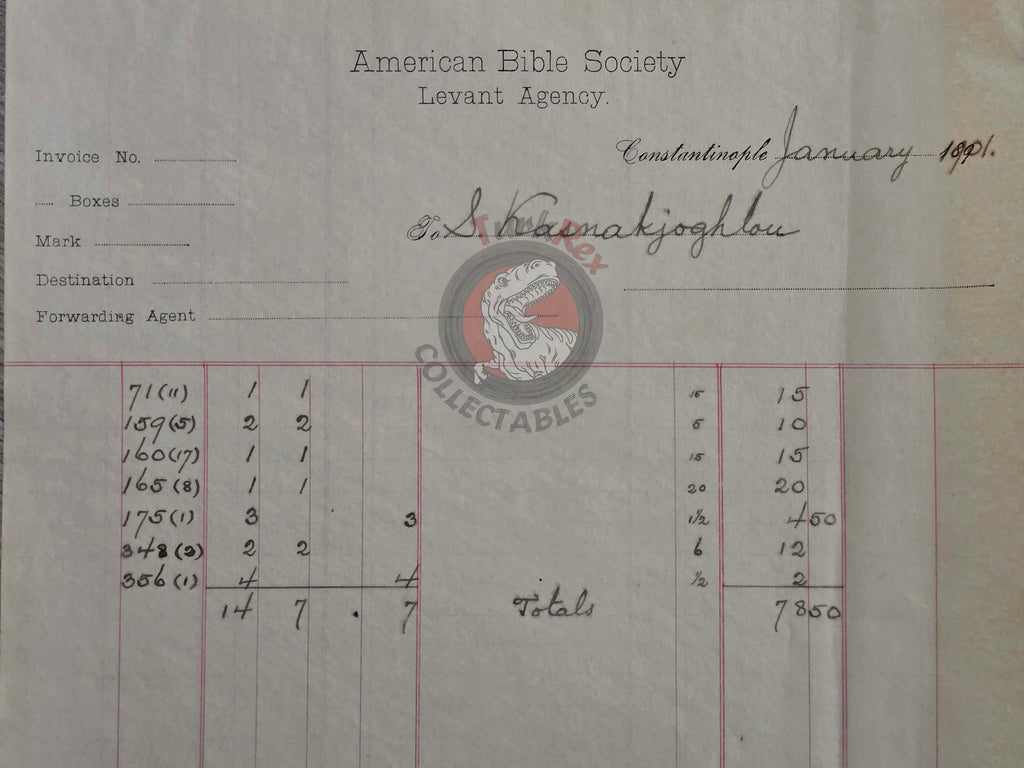 American Bible Society
Levant Agency.
Constantinople January 1901.
Invoice No.
Boxes
To S. Kasnakjoghlou
Mark
Destination
Forwarding Agent
T Rex
COLLECTABLES
71(11) 1 1 15 15
159(5) 2 2 5 10
160(17) 1 1 15 15
165(8) 1 1 20 20
175(1) 3 3 1½ 4 50
348(3) 2 2 6 12
356(1) 4 4 ½ 2
14 7 . 7 Totals 78 50